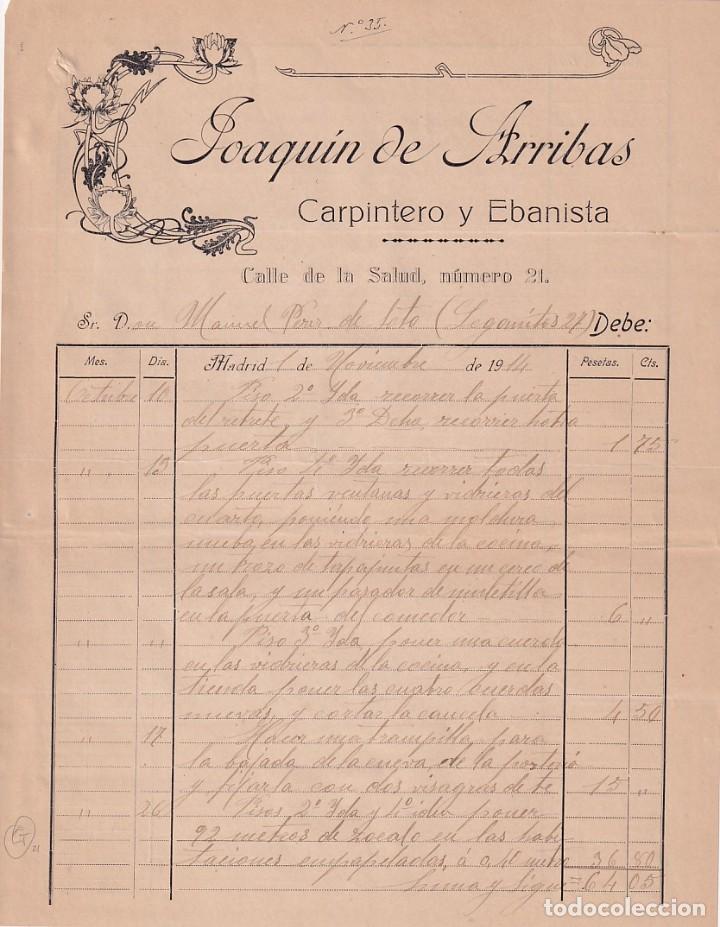 N.º 35.
Joaquín de Arribas
Carpintero y Ebanista
Calle de la Salud, número 21.
Sr. Don Manuel Perez de Soto (Leganitos 27) Debe:
Mes. Dia. Madrid 1 de Noviembre de 1914 Pesetas. Cts.
Octubre 10 Piso 2º Yda recorrer la puerta
del retrete, y 3º Dcha, recorrer
puerta 1 75
" 13 Piso 4º Yda, recorrer todas
las puertas ventanas y vidrieras del
cuarto, poniendo una moldura
nueba, en las vidrieras de la cocina,
un trozo de tapajuntas en un cerco de
la sala, y un pasador de muletilla
en la puerta del comedor 6 "
" " Piso 3º Yda poner una cuerda
en las vidrieras de la cocina, y en la
tienda poner las cuatro cuerdas
nuevas, y cortar la 4 50
" 17 Hacer una trampilla para
la bajada de la cueva, de la portería
y fijarla con dos visagras de te 15 "
" 26 Pisos 2º Yda y 4º idem poner
92 metros de zocalo en las habi-
taciones empapeladas, á 0,40 metro 36 80
Suma y sigue = 64 05
G
21
todocoleccion
todocoleccion.net